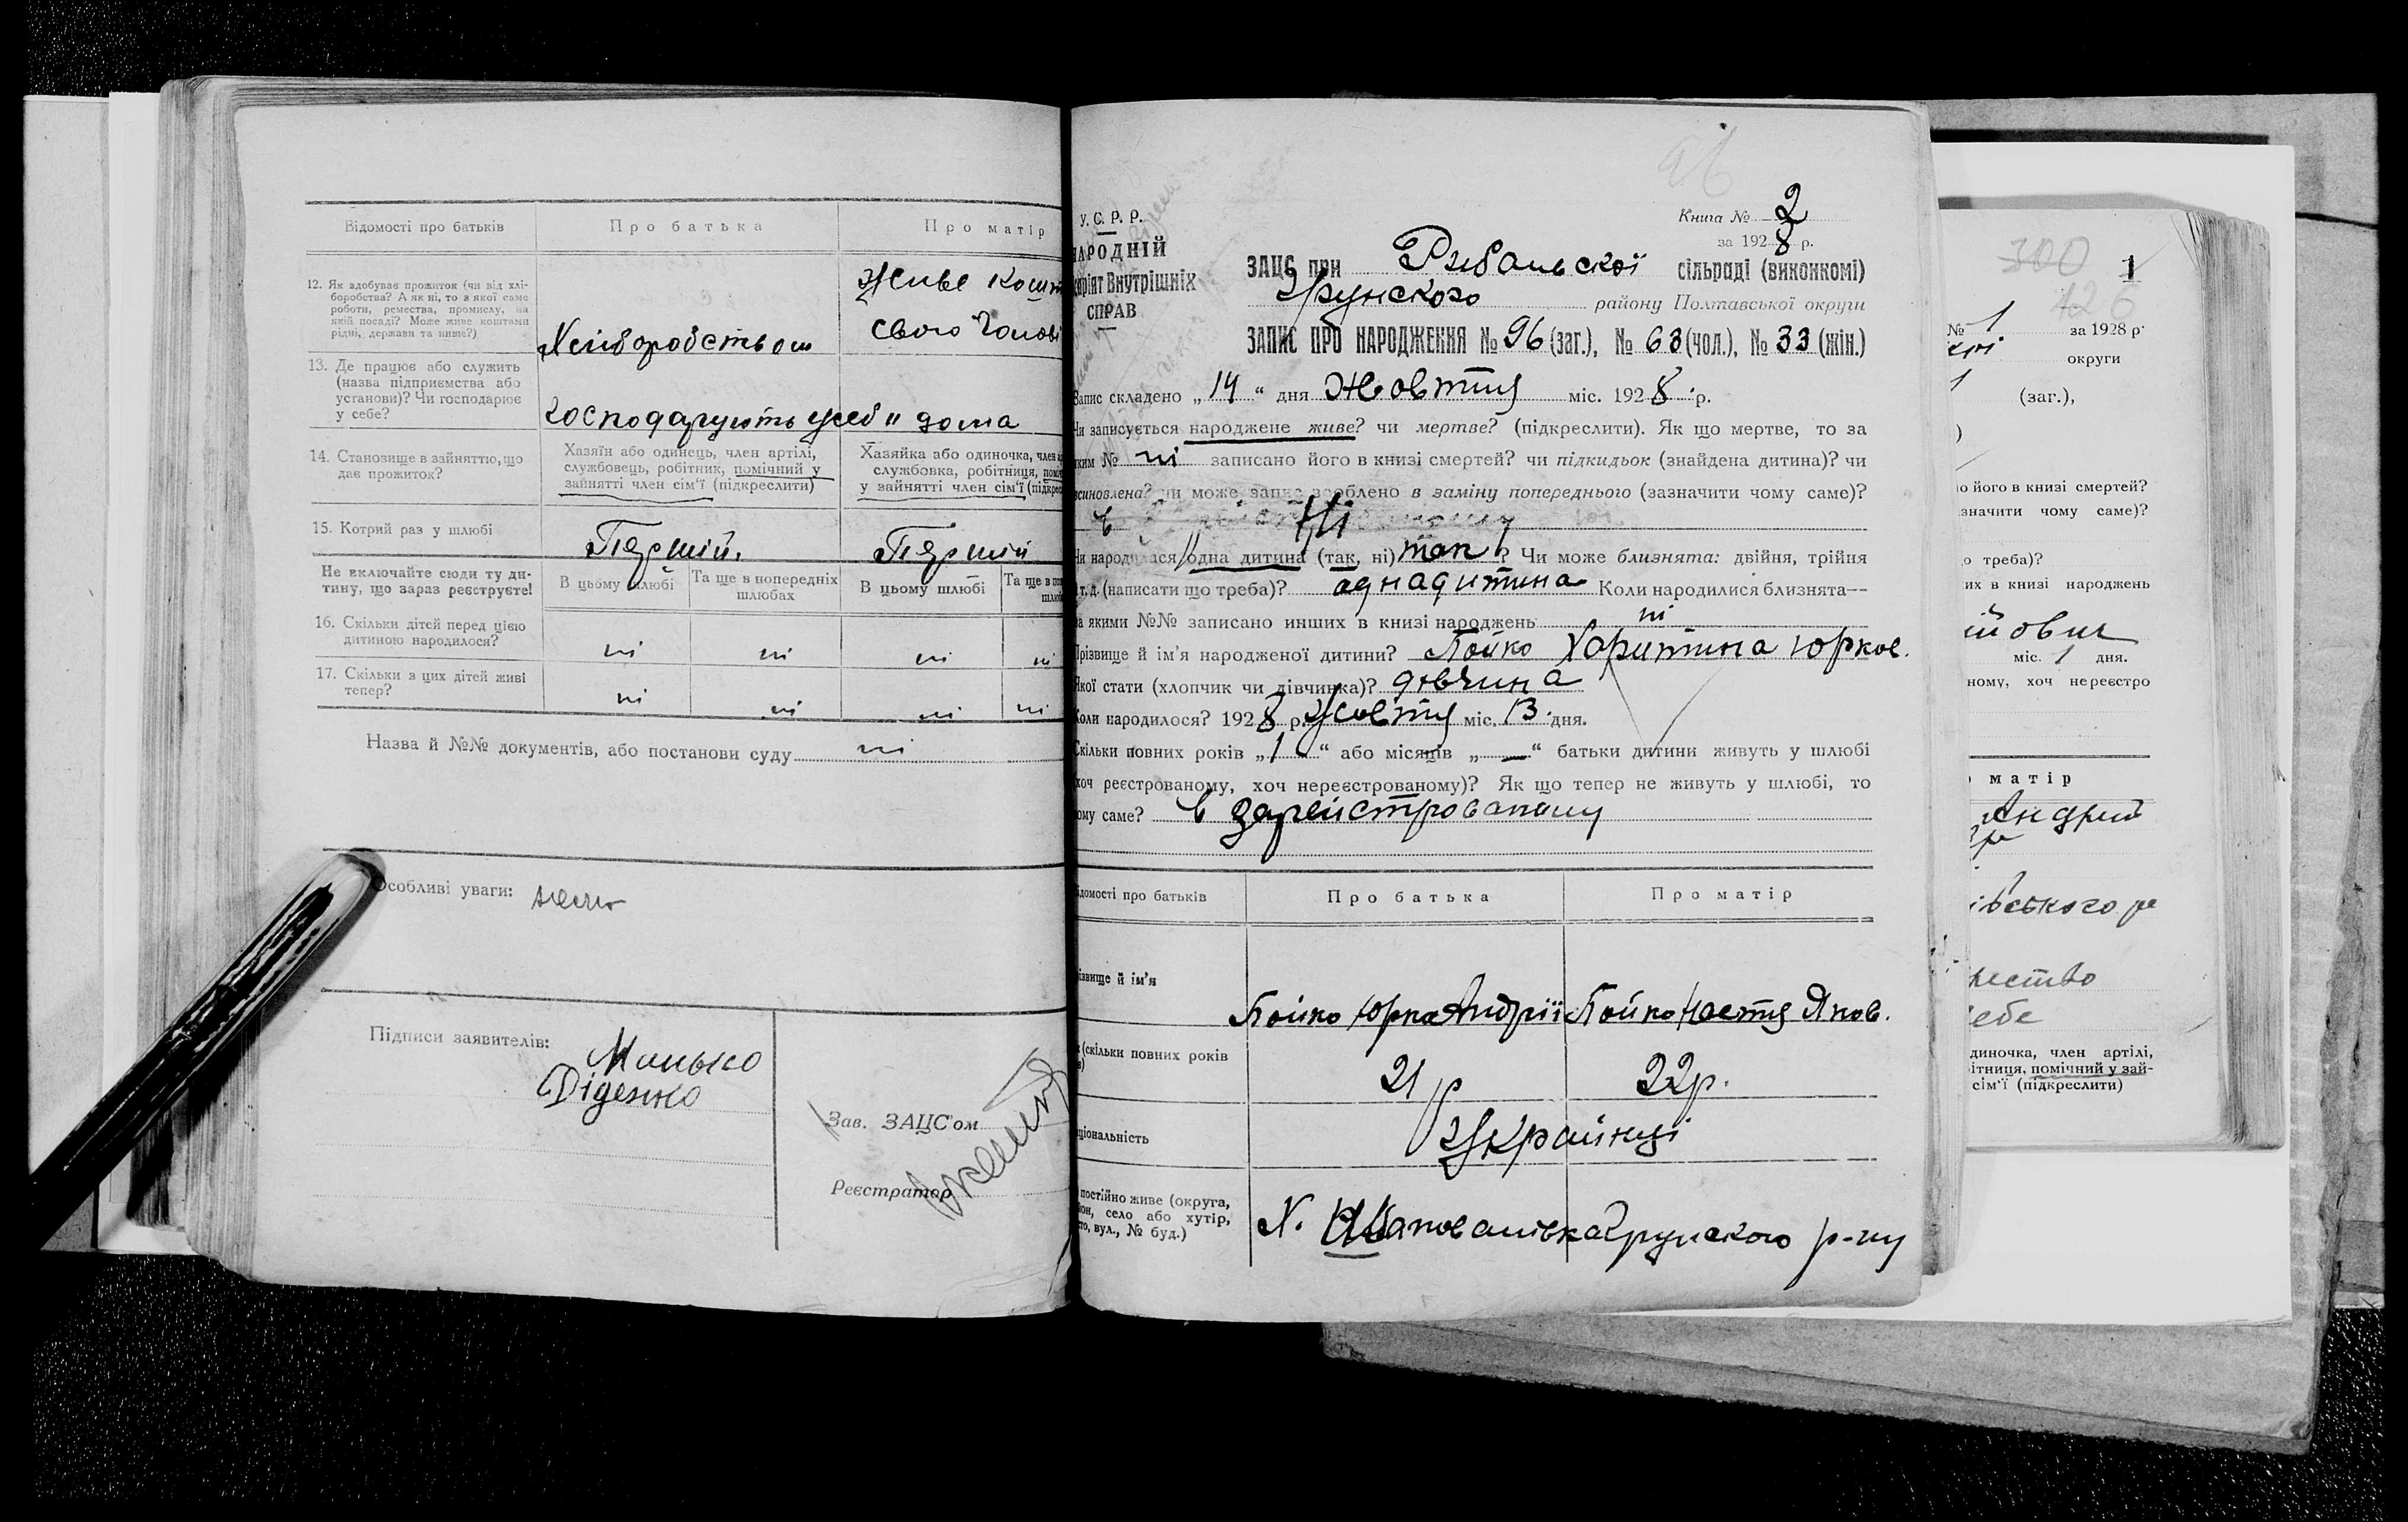 Відомості про батьків
Про батька
Про матір
12. Як здобуває прожиток (чи від хлі-
боробства? А як ні, то з якої саме
роботи, ремества, промислу, на
якій посаді? Може живе коштами
рідні, держави та инше?)
Хліборобством
Живе кошт
свого чолові
13. Де працює або служить
(назва підприємства або
установи)? Чи господарює
у себе?
господарують у себ и дома
14. Становище в зайняттю, що
дає прожиток?
Хазяїн або одинець, член артілі,
службовець, робітник, помічний у
зайнятті член сім'ї (підкреслити)
Хазяйка або одиночка, член а
службовка, робітниця, помі
у зайнятті член сім'ї (підкрес
15. Котрий раз у шлюбі
Первший.
Первший
Не включайте сюди ту ди-
тину, що зараз реєструєте!
В цьому шлюбі
Та ще в попередніх
шлюбах
В цьому шлюбі
Та ще в поп
шлюб
16. Скільки дітей перед цією
дитиною народилося?
ні ні ні ні
17. Скільки з цих дітей живі
тепер?
ні ні ні ні
Назва й №№ документів, або постанови суду ні
Особливі уваги:
Підписи заявителів: Манько
Діденко
Зав. ЗАЦС'ом
Реєстратор
У. С. Р. Р.
НАРОДНІЙ
ріят Внутрішніх
СПРАВ
96
Книга № 2
за 1928 р.
ЗАЦС при Рибальскої сільраді (виконкомі)
Грунского району Полтавської округи
ЗАПИС ПРО НАРОДЖЕННЯ № 96 (заг.), № 63 (чол.), № 33 (жін.)
Запис складено „14“ дня Жовтня міс. 1928 р.
Чи записується народжене живе? чи мертве? (підкреслити). Як що мертве, то за
яким № ні записано його в книзі смертей? чи підкидьок (знайдена дитина)? чи
всиновлена? чи може запис зроблено в заміну попереднього (зазначити чому саме)?
Ні
Чи народилася одна дитина (так, ні) так? Чи може близнята: двійня, трійня
і т. д. (написати що треба)? аднадитина Коли народилися близнята—
за якими №№ записано инших в книзі народжень ні
Прізвище й ім'я народженої дитини? Бойко Харитина Юрков.
Якої стати (хлопчик чи дівчинка)? дівчина
Коли народилося? 1928 р. Жовтня міс. 13 дня.
Скільки повних років „1“ або місяців „—“ батьки дитини живуть у шлюбі
хоч реєстрованому, хоч нереєстрованому)? Як що тепер не живуть у шлюбі, то
чому саме? в зареїстрованому
ідомості про батьків
Про батька
Про матір
ізвище й ім'я
Бойко Юрка Андрії
Бойко Настя Яков.
(скільки повних років
21 р
22р.
ціональність
Українці
постійно живе (округа,
йон, село або хутір,
сто, вул., № буд.)
Х. Шаповалівка Грунского р-ну
300
426
1
№ 1 за 1928 р.
кої округи
1 (заг.),
)
о його в книзі смертей?
значити чому саме)?
о треба)?
их в книзі народжень
йович
міс. 1 дня.
ному, хоч нереєстро
матір
Андрий
івського ра
себе
диночка, член артілі,
ітниця, помічний у зай-
сім'ї (підкреслити)